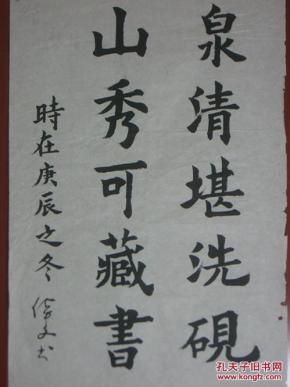 泉清堪洗硯
山秀可藏書
時在庚辰之冬
孔夫子旧书网